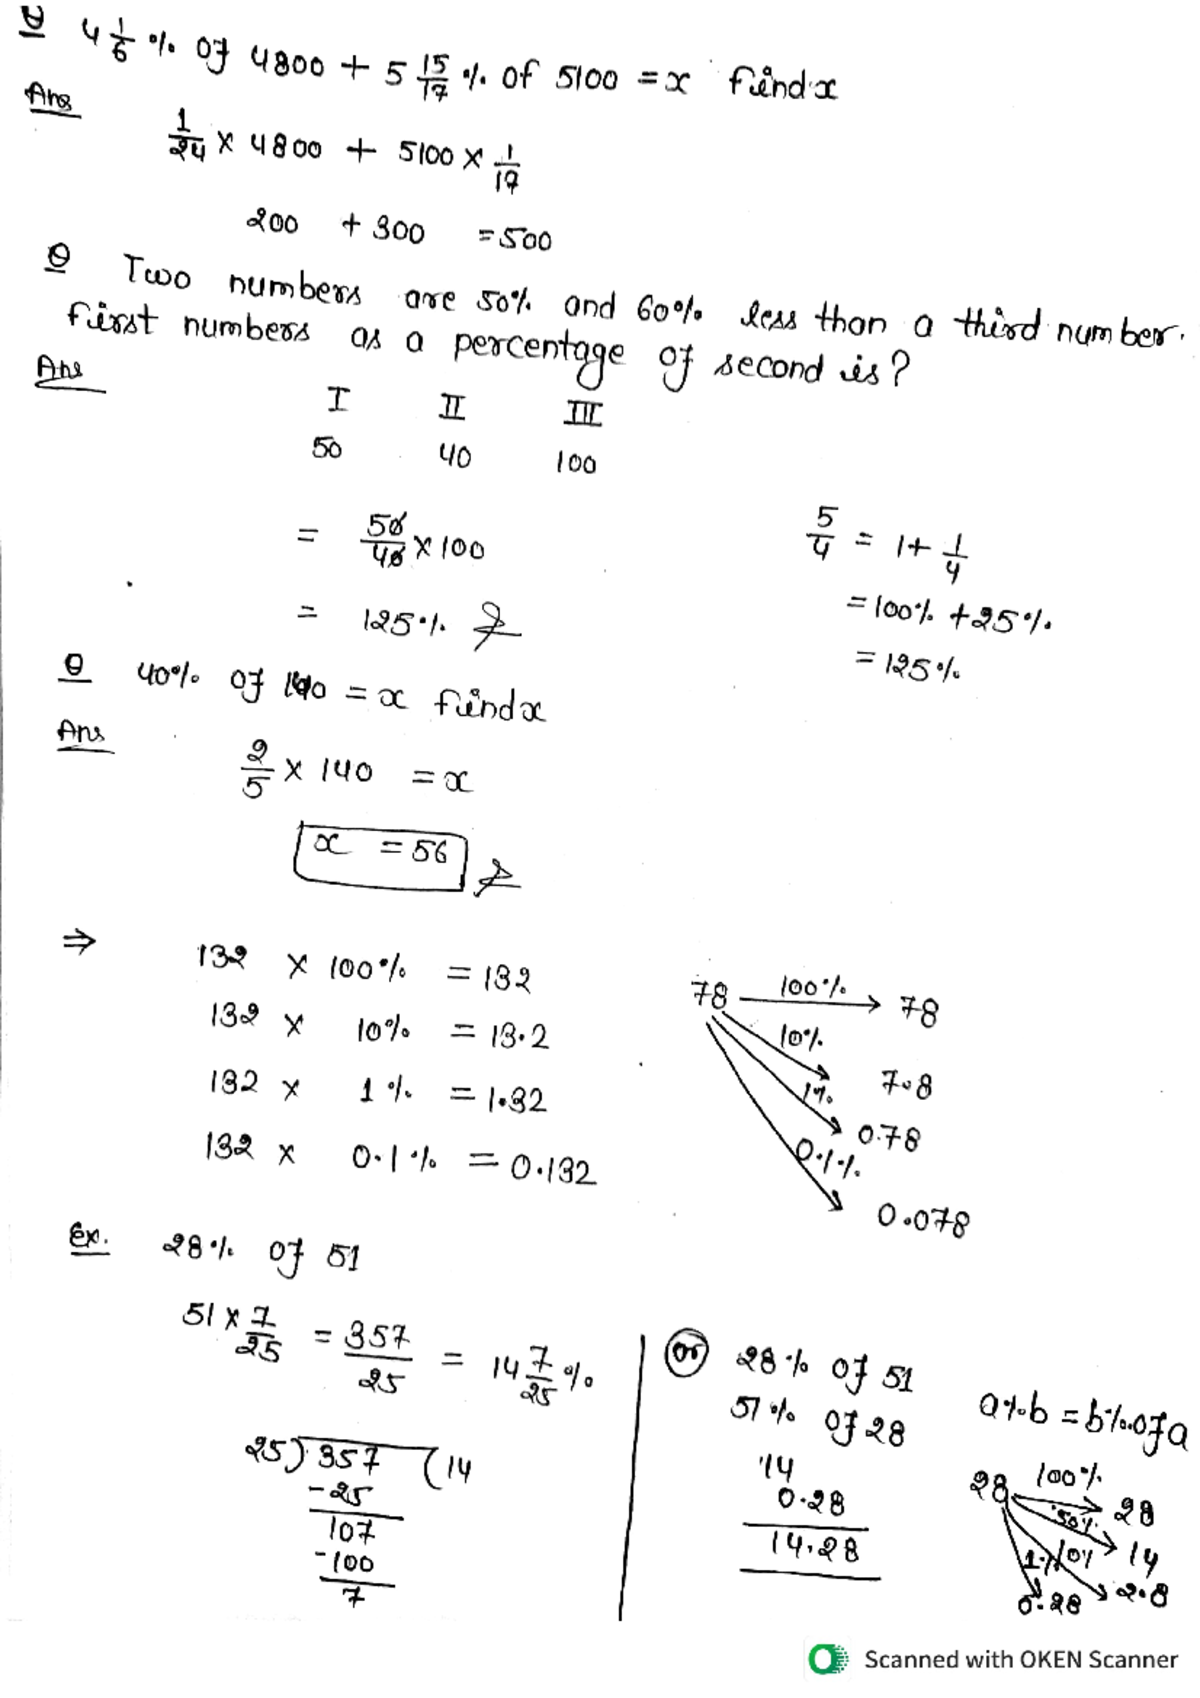 Q 4 1/6 % of 4800 + 5 15/17 % of 5100 = x find x
Ans
1/24 × 4800 + 5100 × 1/17
200 + 300 = 500
Q Two numbers are 50% and 60% less than a third number.
first numbers as a percentage of second is?
Ans
I II III
50 40 100
= 50/40 × 100
= 125%
5/4 = 1 + 1/4
= 100% + 25%
= 125%
Q 40% of 140 = x find x
Ans
2/5 × 140 = x
x = 56
⇒ 132 × 100% = 132
132 × 10% = 13.2
132 × 1% = 1.32
132 × 0.1% = 0.132
78 100% 78
10% 7.8
1% 0.78
0.1% 0.078
Ex. 28% of 51
51 × 7/25 = 357/25 = 14 7/25 %
25) 357 (14
-25
107
-100
7
or 28% of 51
51% of 28
14
0.28
14.28
a%b = b% of a
28 100% 28
50% 14
10% 2.8
1% 0.28
Scanned with OKEN Scanner